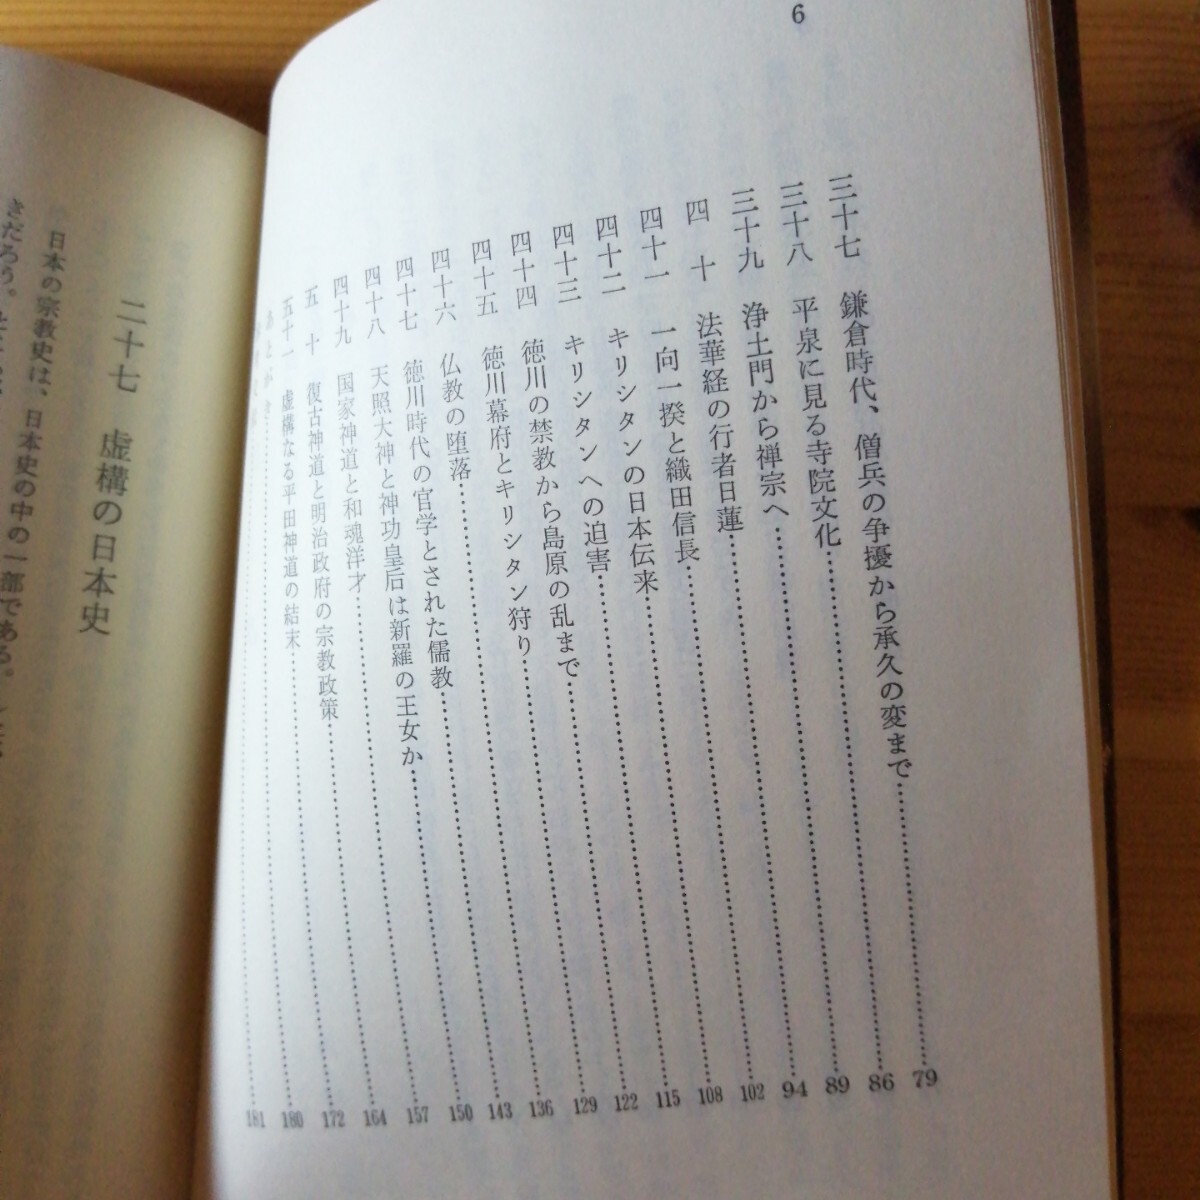 6
三十七 鎌倉時代、僧兵の争擾から承久の変まで……79
三十八 平泉に見る寺院文化……86
三十九 浄土門から禅宗へ……89
四十 法華経の行者日蓮……94
四十一 一向一揆と織田信長……102
四十二 キリシタンの日本伝来……108
四十三 キリシタンへの迫害……115
四十四 徳川の禁教から島原の乱まで……122
四十五 徳川幕府とキリシタン狩り……129
四十六 仏教の堕落……136
四十七 徳川時代の官学とされた儒教……143
四十八 天照大神と神功皇后は新羅の王女か……150
四十九 国家神道と和魂洋才……157
五十 復古神道と明治政府の宗教政策……164
五十一 虚構なる平田神道の結末……172
あとがき……180
……181
二十七 虚構の日本史
日本の宗教史は、日本史の中の一部である。
きだろう。